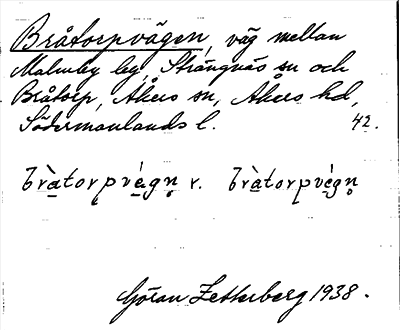 Bråtorpvägen, väg mellan
Malmby by, Strängnäs sn och
Bråtorp, Åkers sn, Åkers hd,
Södermanlands l. 42.
brà̱torpvé̱gn̥ r. brà̱torpvé̱gn̥
Göran Zetterberg 1938.